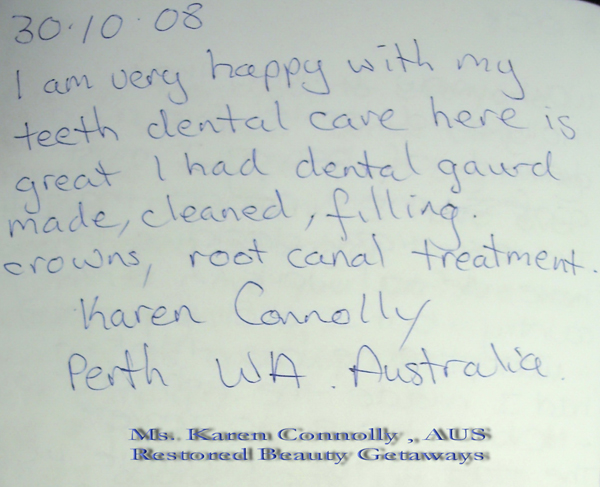 30.10.08
I am very happy with my
teeth dental care here is
great I had dental gaurd
made, cleaned, filling.
crowns, root canal treatment.
Karen Connolly
Perth WA. Australia.
Ms. Karen Connolly, AUS
Restored Beauty Getaways